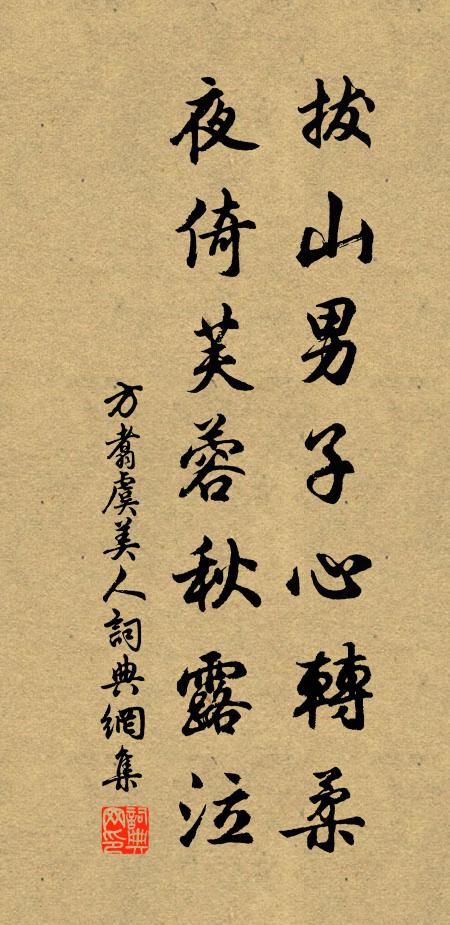 拔山男子心轉柔
夜倚芙蓉秋露泣
方翥虞美人詞典網集
詞典網印